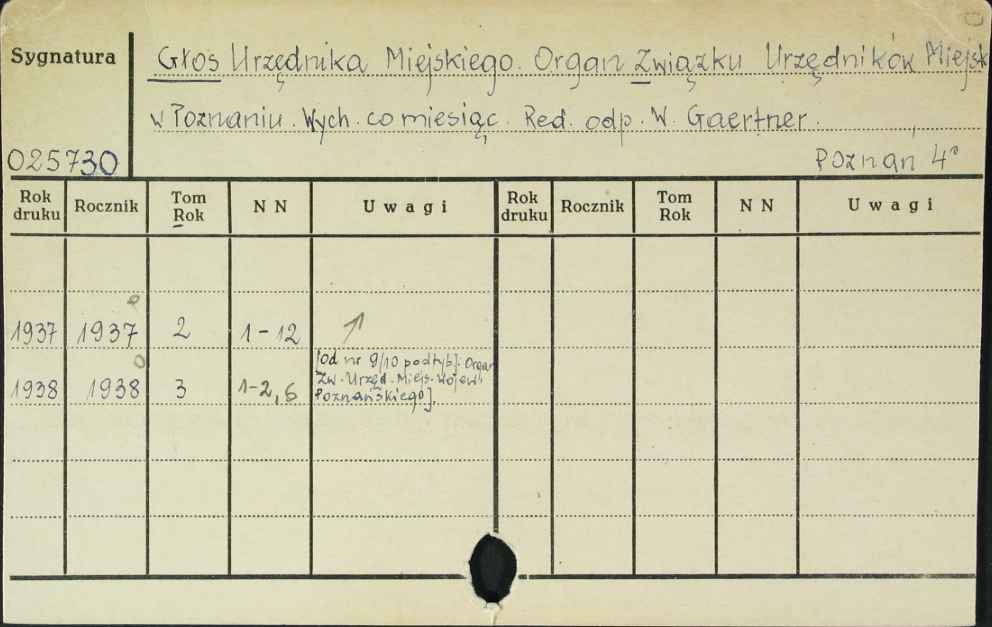 Sygnatura
Głos Urzędnika Miejskiego. Organ Związku Urzędników Miejsk
w Poznaniu. Wych. co miesiąc. Red. odp. W. Gaertner.
025730
Poznań 4°
Rok druku Rocznik Tom Rok N N Uwagi Rok druku Rocznik Tom Rok N N Uwagi
1937 1937 2 1-12
[od nr 9/10 podtyt]: Organ
1938 1938 3 1-2,6 Zw. Urzęd. Miejs. Wojew.
Poznańskiego].